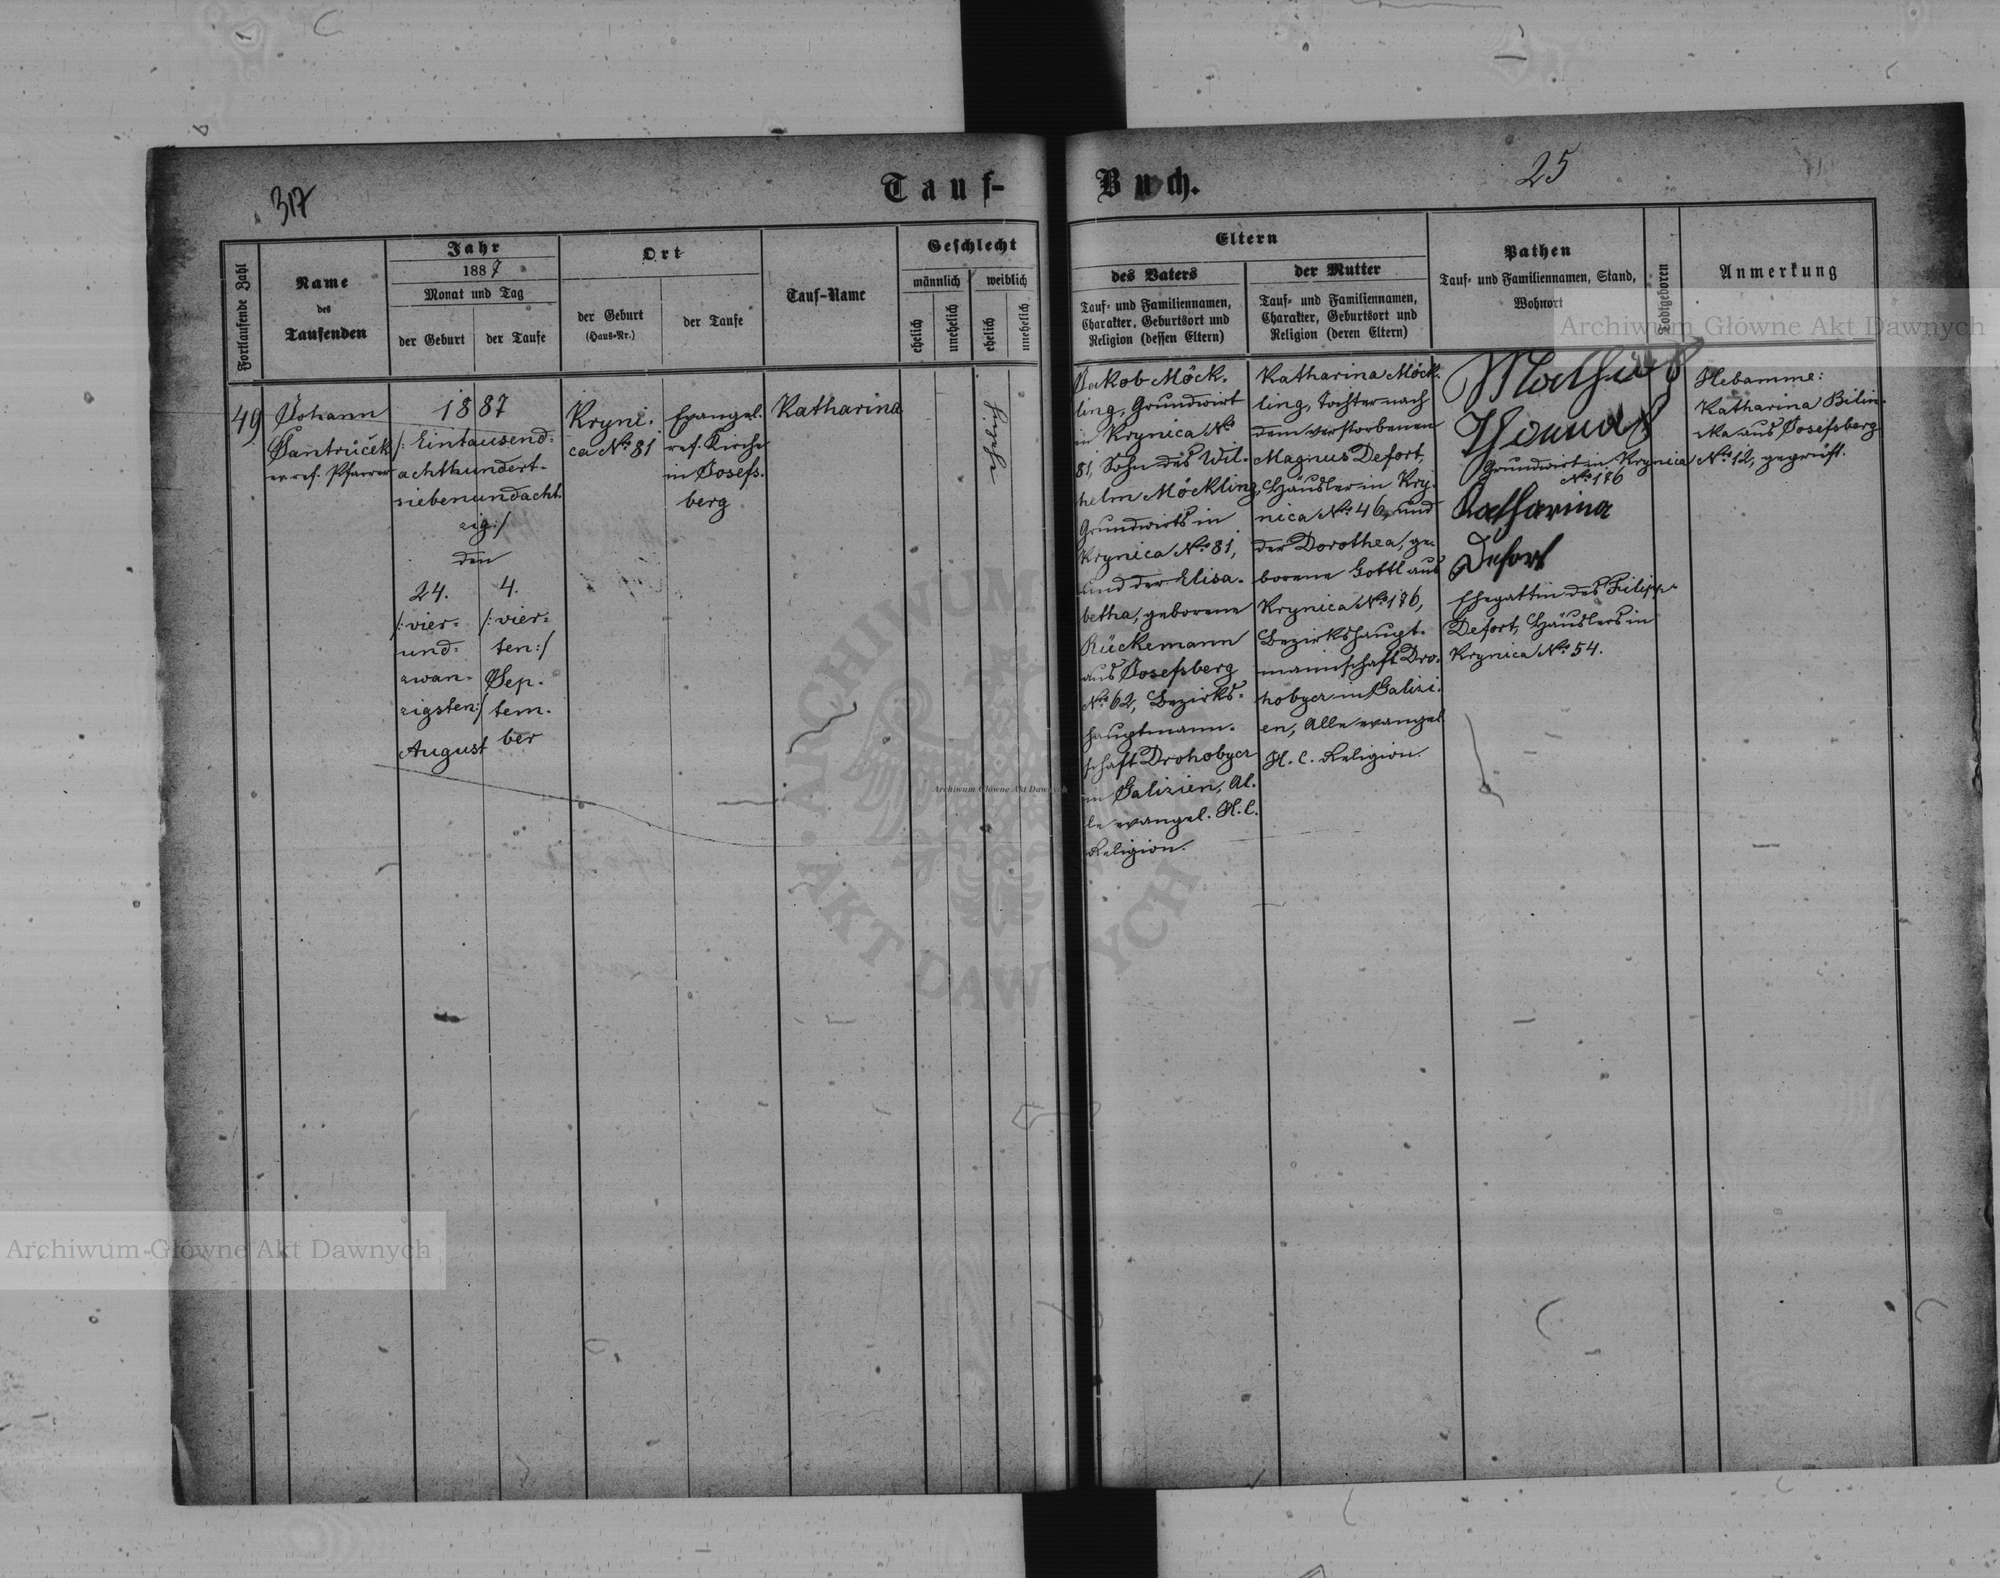 317
Tauf-
Buch.
25
Fortlaufende Zahl
Name
des
Taufenden
Jahr
1887
Monat und Tag
der Geburt
der Taufe
Ort
der Geburt
(Haus-Nr.)
der Taufe
Tauf-Name
Geschlecht
männlich
weiblich
ehelich
unehelich
ehelich
unehelich
Eltern
des Vaters
Tauf- und Familiennamen,
Charakter, Geburtsort und
Religion (dessen Eltern)
der Mutter
Tauf- und Familiennamen,
Charakter, Geburtsort und
Religion (deren Eltern)
Pathen
Tauf- und Familiennamen, Stand,
Wohnort
Todtgeboren
Anmerkung
49
Johann
Jantrůček
ev. ref. Pfarrer
1887
/: Eintausend-
achthundert-
siebenundacht-
zig:/
den
24.
/:vier-
und-
zwan-
zigsten:/
August
4.
/:vier-
ten:/
Sep-
tem-
ber
Kryni-
ca No. 81
Evangel.
ref. Kirche
in Josefs-
berg
Katharina
ehelich
Jakob Möck-
ling, Grundwirt
in Krynica No.
81, Sohn des Wil-
helm Möckling,
Grundwirts in
Krynica No. 81,
und der Elisa-
betha, geborene
Rückemann
aus Josefsberg
No. 62, Bezirks-
hauptmann-
schaft Drohobycz
in Galizien, Al-
le evangel. H. C.
Religion.
Katharina Möck-
ling, Tochter nach
dem verstorbenen
Magnus Defort,
Häusler in Kry-
nica No. 46, und
der Dorothea, ge-
borene Gottl aus
Krynica No. 176,
Bezirkshaupt-
mannschaft Dro-
hobycz in Galizi-
en, Alle evangel.
H. C. Religion.
Mathias
Grundwirt in Krynica
No. 176
Katharina
Defort
Ehegattin des Filipp
Defort, Häuslers in
Krynica No. 54.
Hebamme:
Katharina Bilin-
ska aus Josefsberg
No. 12, geprüft.
Archiwum Główne Akt Dawnych
Archiwum Główne Akt Dawnych
ARCHIWUM
AKT DAWNYCH
Archiwum Główne Akt Dawnych